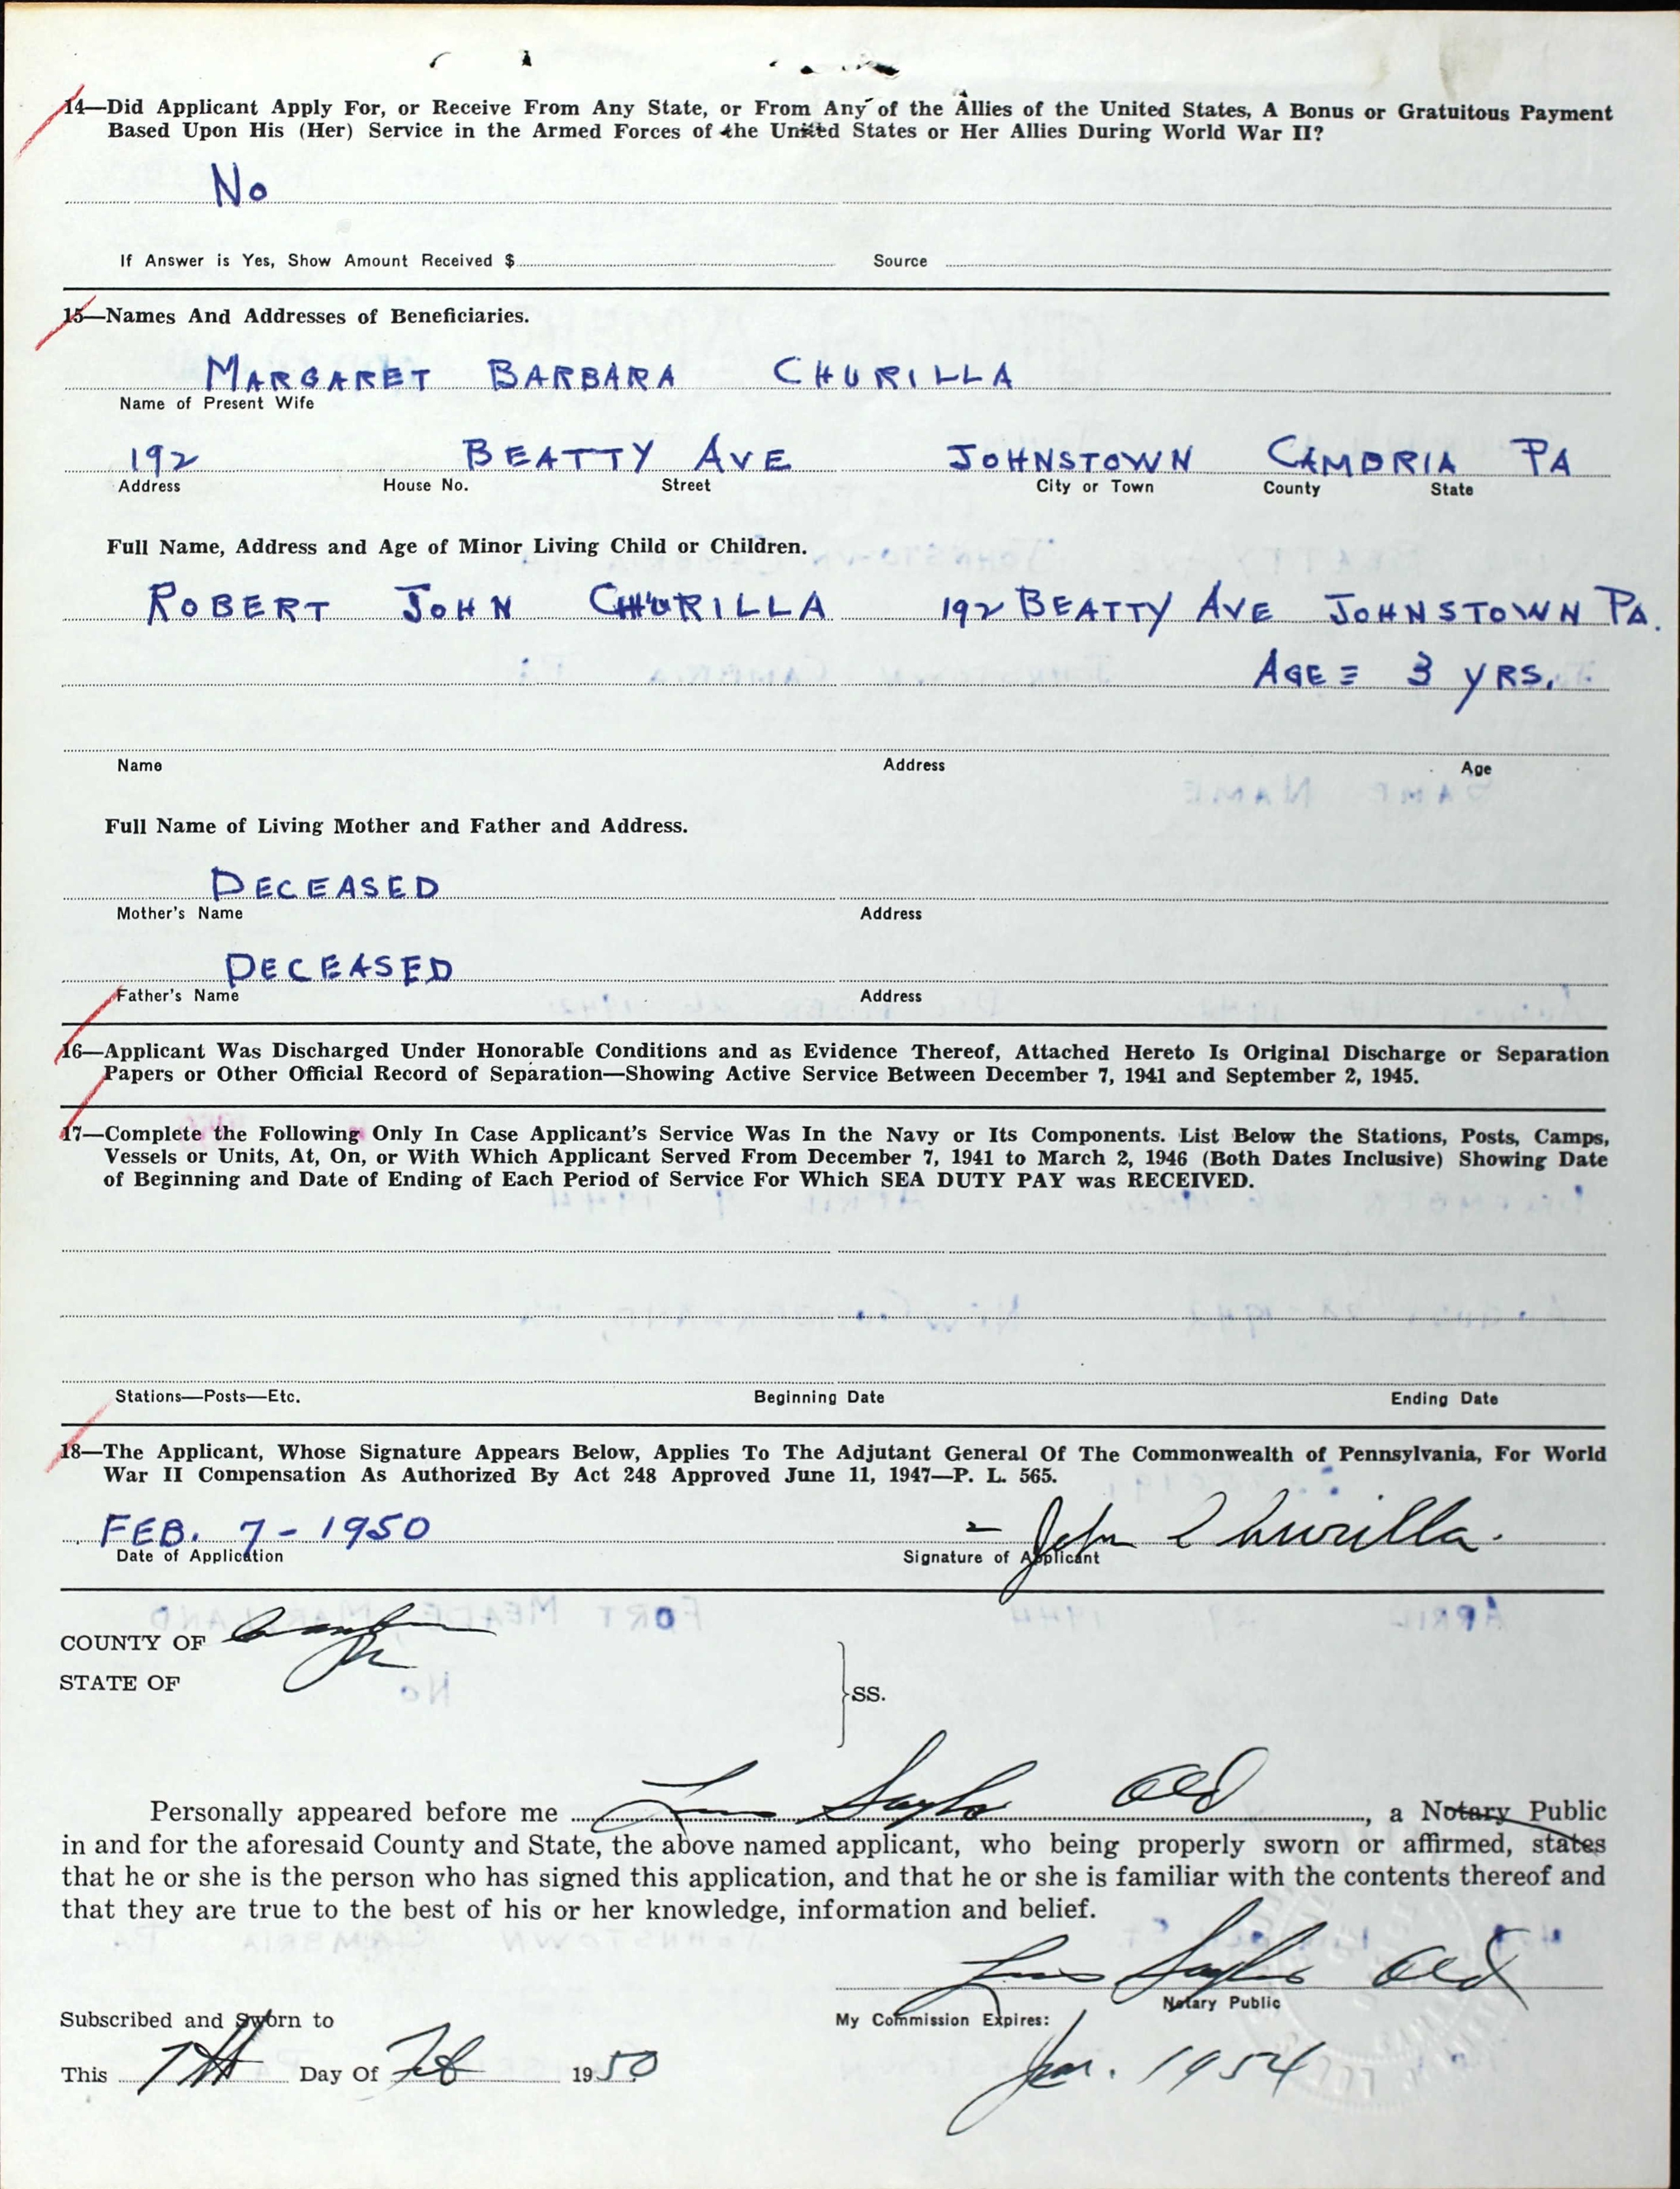 14—Did Applicant Apply For, or Receive From Any State, or From Any of the Allies of the United States, A Bonus or Gratuitous Payment
Based Upon His (Her) Service in the Armed Forces of the United States or Her Allies During World War II?
No
If Answer is Yes, Show Amount Received $ Source
15—Names And Addresses of Beneficiaries.
MARGARET BARBARA CHURILLA
Name of Present Wife
192 BEATTY AVE JOHNSTOWN CAMBRIA PA
Address House No. Street City or Town County State
Full Name, Address and Age of Minor Living Child or Children.
ROBERT JOHN CHURILLA 192 BEATTY AVE JOHNSTOWN PA.
AGE = 3 YRS.
Name Address Age
Full Name of Living Mother and Father and Address.
DECEASED
Mother's Name Address
DECEASED
Father's Name Address
16—Applicant Was Discharged Under Honorable Conditions and as Evidence Thereof, Attached Hereto Is Original Discharge or Separation
Papers or Other Official Record of Separation—Showing Active Service Between December 7, 1941 and September 2, 1945.
17—Complete the Following Only In Case Applicant's Service Was In the Navy or Its Components. List Below the Stations, Posts, Camps,
Vessels or Units, At, On, or With Which Applicant Served From December 7, 1941 to March 2, 1946 (Both Dates Inclusive) Showing Date
of Beginning and Date of Ending of Each Period of Service For Which SEA DUTY PAY was RECEIVED.
Stations—Posts—Etc. Beginning Date Ending Date
18—The Applicant, Whose Signature Appears Below, Applies To The Adjutant General Of The Commonwealth of Pennsylvania, For World
War II Compensation As Authorized By Act 248 Approved June 11, 1947—P. L. 565.
FEB. 7 - 1950 John Churilla.
Date of Application Signature of Applicant
COUNTY OF Cambria
STATE OF Pa
SS.
Personally appeared before me Ald , a Notary Public
in and for the aforesaid County and State, the above named applicant, who being properly sworn or affirmed, states
that he or she is the person who has signed this application, and that he or she is familiar with the contents thereof and
that they are true to the best of his or her knowledge, information and belief.
Ald
Notary Public
Subscribed and Sworn to My Commission Expires:
This 7th Day Of Feb 1950 Jan. 1954